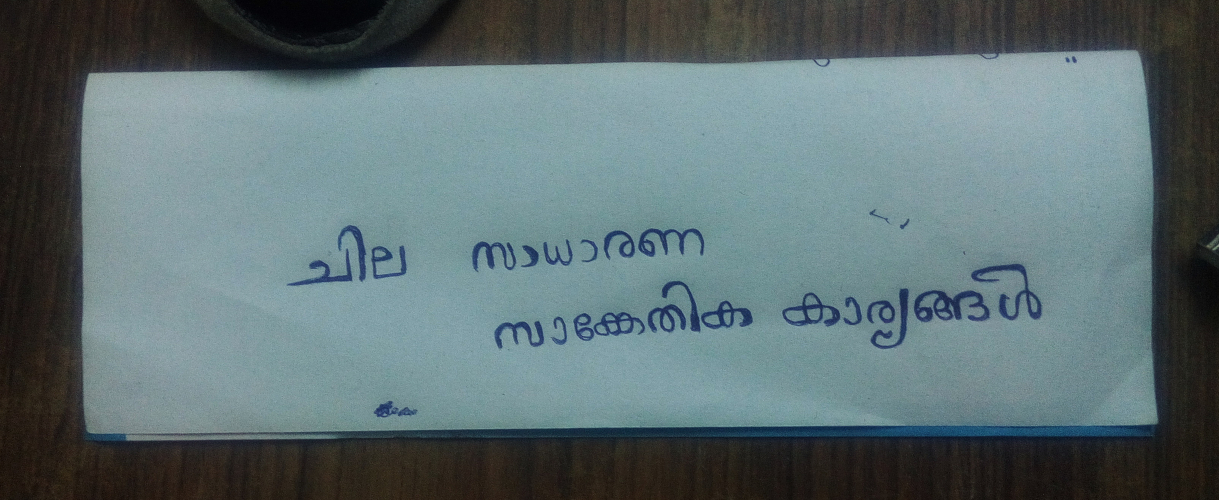 ചില സാധാരണ
സാങ്കേതിക കാര്യങ്ങൾ